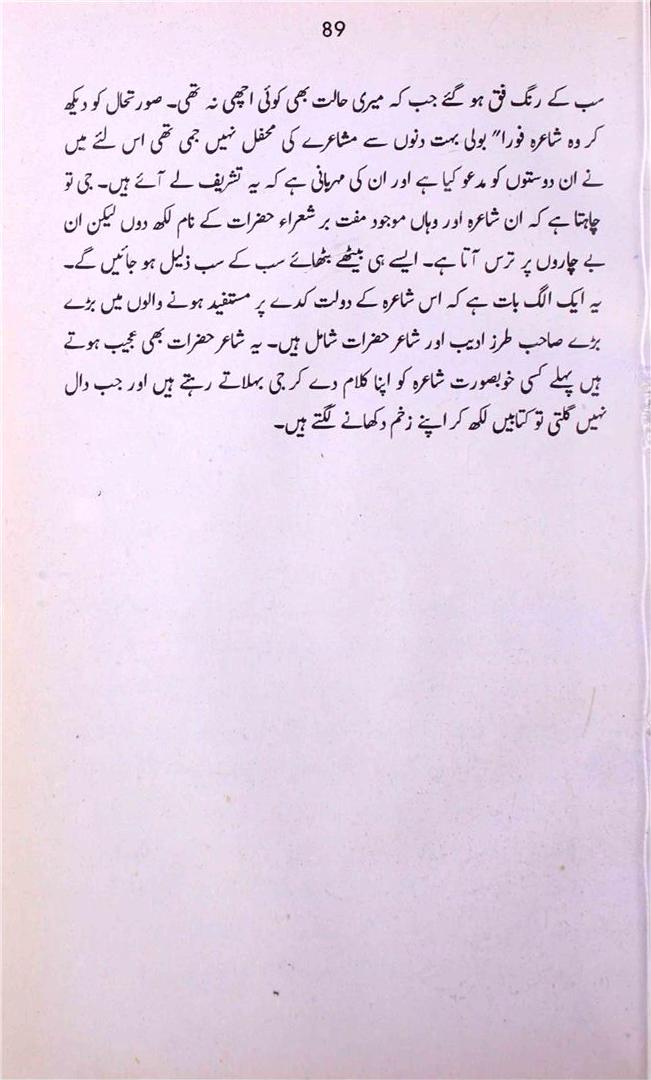 89
سب کے رنگ فق ہو گئے جب کہ میری حالت بھی کوئی اچھی نہ تھی۔ صورتحال کو دیکھ
کر وہ شاعرہ فورا" بولی بہت دنوں سے مشاعرے کی محفل نہیں جمی تھی اس لئے میں
نے ان دوستوں کو مدعو کیا ہے اور ان کی مہربانی ہے کہ یہ تشریف لے آئے ہیں۔ جی تو
چاہتا ہے کہ ان شاعرہ اور وہاں موجود مفت بر شعراء حضرات کے نام لکھ دوں لیکن ان
بے چاروں پر ترس آتا ہے۔ ایسے ہی بیٹھے بٹھائے سب کے سب ذلیل ہو جائیں گے۔
یہ ایک الگ بات ہے کہ اس شاعرہ کے دولت کدے پر مستفید ہونے والوں میں بڑے
بڑے صاحب طرز ادیب اور شاعر حضرات شامل ہیں۔ یہ شاعر حضرات بھی عجیب ہوتے
ہیں پہلے کسی خوبصورت شاعرہ کو اپنا کلام دے کر جی بہلاتے رہتے ہیں اور جب دال
نہیں گلتی تو کتابیں لکھ کر اپنے زخم دکھانے لگتے ہیں۔